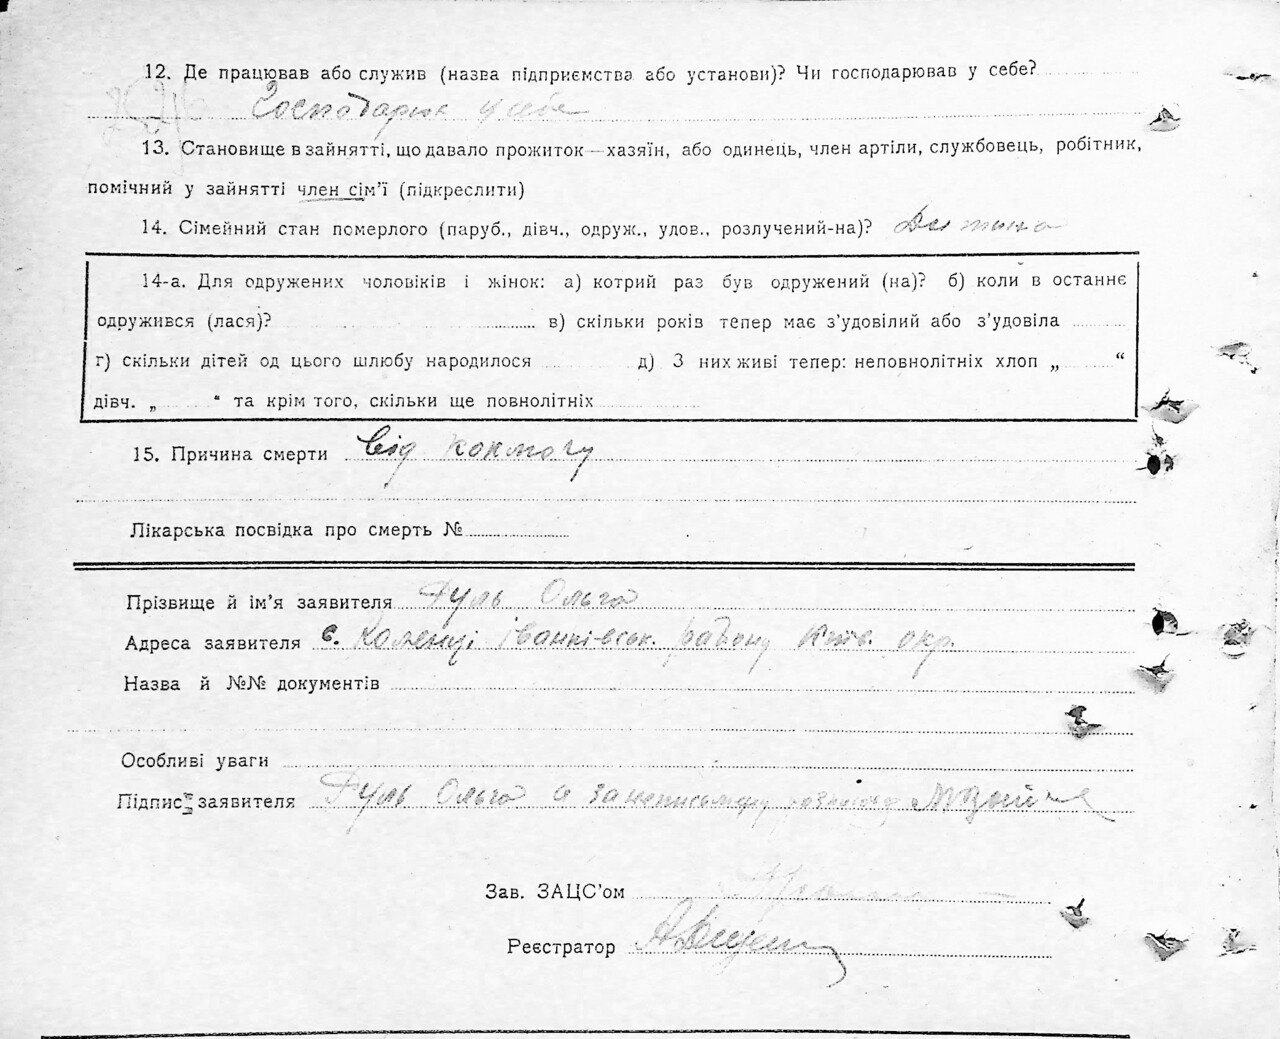 12. Де працював або служив (назва підприємства або установи)? Чи господарював у себе?
Господарює у себе
13. Становище в зайнятті, що давало прожиток—хазяїн, або одинець, член артіли, службовець, робітник,
помічний у зайнятті член сім'ї (підкреслити)
14. Сімейний стан померлого (паруб., дівч., одруж., удов., розлучений-на)? Дитина
14-а. Для одружених чоловіків і жінок: а) котрий раз був одружений (на)? б) коли в останнє
одружився (лася)? в) скільки років тепер має з'удовілий або з'удовіла
г) скільки дітей од цього шлюбу народилося д) З них живі тепер: неповнолітніх хлоп „ “
дівч. „ “ та крім того, скільки ще повнолітніх
15. Причина смерти від коклюшу
Лікарська посвідка про смерть №
Прізвище й ім'я заявителя Гуль Ольга
Адреса заявителя с. Коленці Іванківськ. району Київ. окр.
Назва й №№ документів
Особливі уваги
Підпис заявителя Гуль Ольга а за неписьмену
Зав. ЗАЦС'ом
Реєстратор